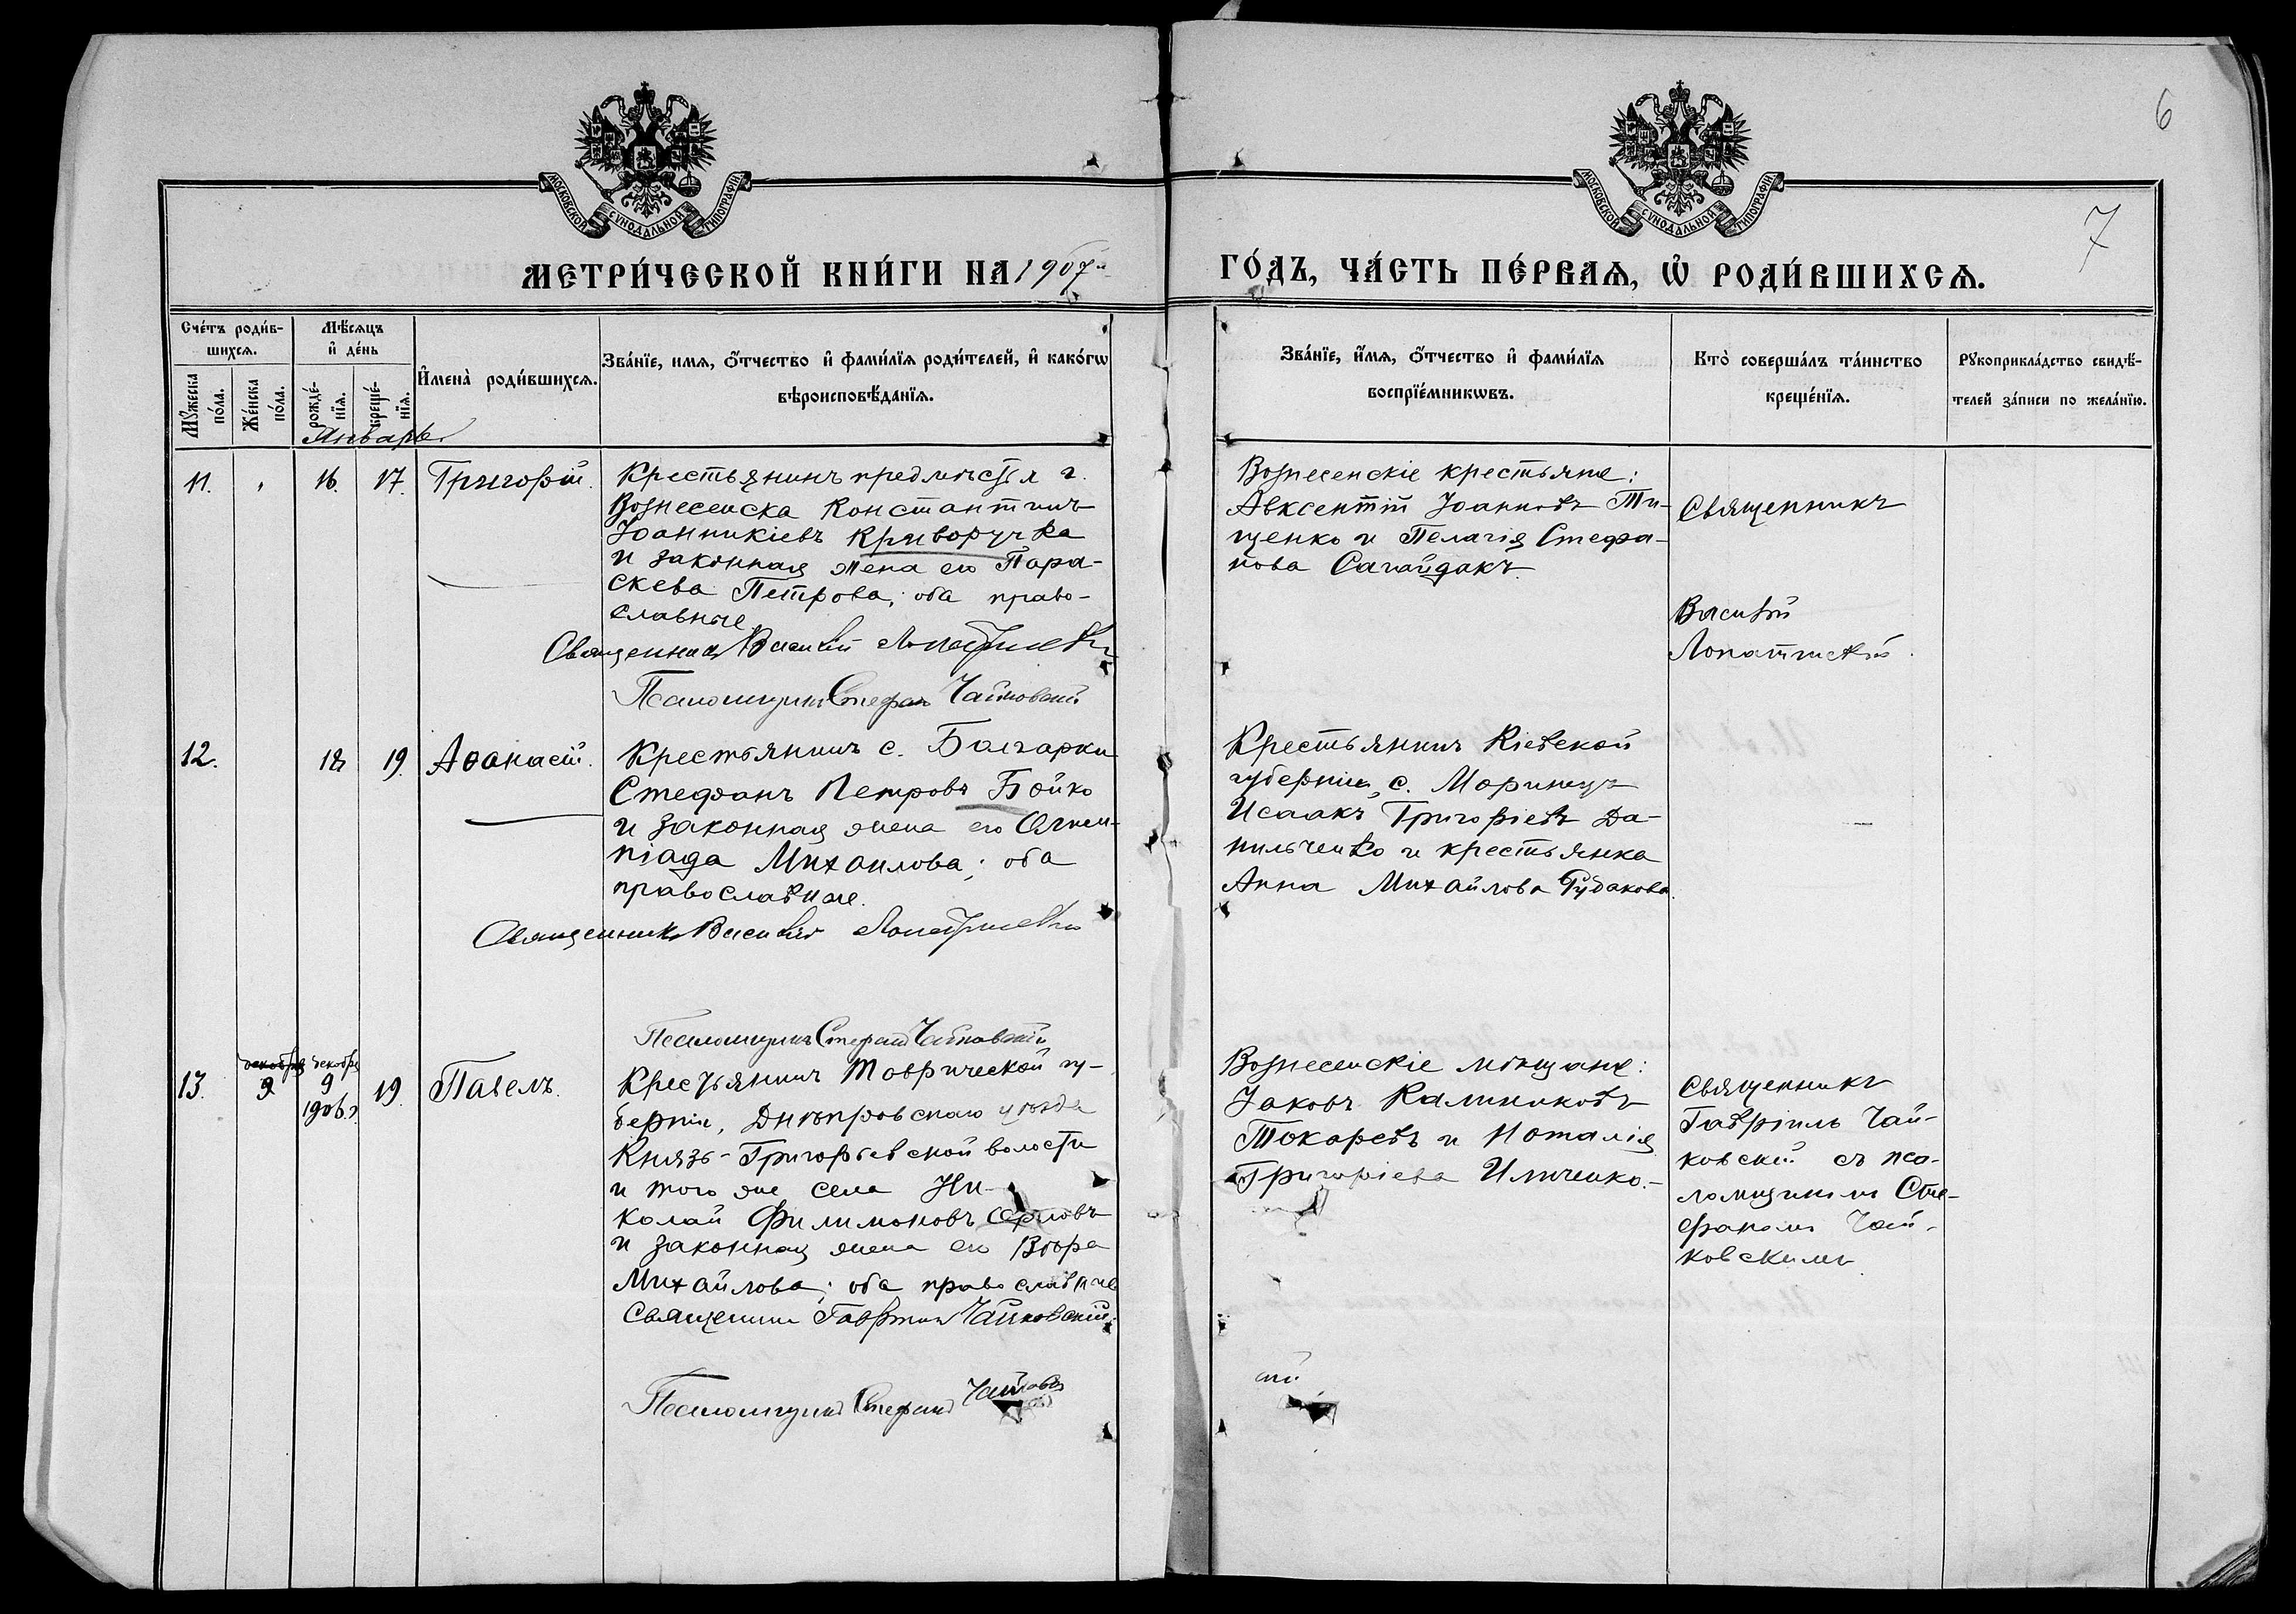 6
7
МОСКОВСКОЙ СУНОДАЛЬНОЙ ТИПОГРАФІИ
МОСКОВСКОЙ СУНОДАЛЬНОЙ ТИПОГРАФІИ
МЕТРИ́ЧЕСКОЙ КНИ́ГИ НА 1907
ГО́ДЪ, ЧА́СТЬ ПЕ́РВАѦ, Ѽ РОДИ́ВШИХСѦ.
Сче́тъ роди́в-
шихсѧ.
Мꙋ́жеска
по́ла.
Же́нска
по́ла.
Мѣ́сѧцъ
и҆ де́нь
рожде́-
нїѧ.
креще́-
нїѧ.
И҆мена̀ роди́вшихсѧ.
Зва́нїе, имѧ, ѻ҆́тчество и҆ фами́лїѧ роди́телей, и҆ како́гѡ
вѣроисповѣ́данїѧ.
Зва́нїе, и҆́мѧ, ѻ҆́тчество и҆ фами́лїѧ
воспрїе́мникѡвъ.
Кто̀ соверша́лъ та́инство
креще́нїѧ.
Рꙋкоприкла́дство свидѣ́-
телей за́писи по жела́нїю.
Январь
11.
16.
17.
Григорій.
Крестьянинъ предмѣстья г.
Вознесенска Константинъ
Іоанникіевъ Криворучка
и законная жена его Пара-
скева Петрова; оба право-
славные
Священникъ Василій Лопатинскій
Псаломщикъ Стефанъ Чайковскій
Вознесенскіе крестьяне:
Авксентій Іоанновъ Ти-
щенко и Пелагія Стефа-
нова Сагайдакъ.
Священникъ
Василій
Лопатинскій.
12.
18
19.
Аѳанасій.
Крестьянинъ с. Болгарки
Стефанъ Петровъ Бойко
и законная жена его Олим-
піада Михаилова; оба
православные.
Священникъ Василій Лопатинскій
Псаломщикъ Стефанъ Чайковскій
Крестьянинъ Кіевской
губерніи, с. Моринцъ
Исаакъ Григоріевъ Да-
нильченко и крестьянка
Анна Михайлова Рудакова.
13.
декабря
9
декабря
9
1906 г.
19.
Павелъ.
Крестьянинъ Таврической гу-
берніи, Днѣпровскаго уѣзда
Князь-Григорьевской волости
и того же села Ни-
колай Филимоновъ Орловъ
и законная жена его Вѣра
Михайлова; оба православные
Священникъ Гавріилъ Чайковскій
Псаломщикъ Стефанъ Чайковскій
Вознесенскіе мѣщане:
Іаковъ Калиниковъ
Токаревъ и Наталія
Григоріева Ильченко.
Священникъ
Гавріилъ Чай-
ковскій съ пса-
ломщикомъ Сте-
фаномъ Чай-
ковскимъ